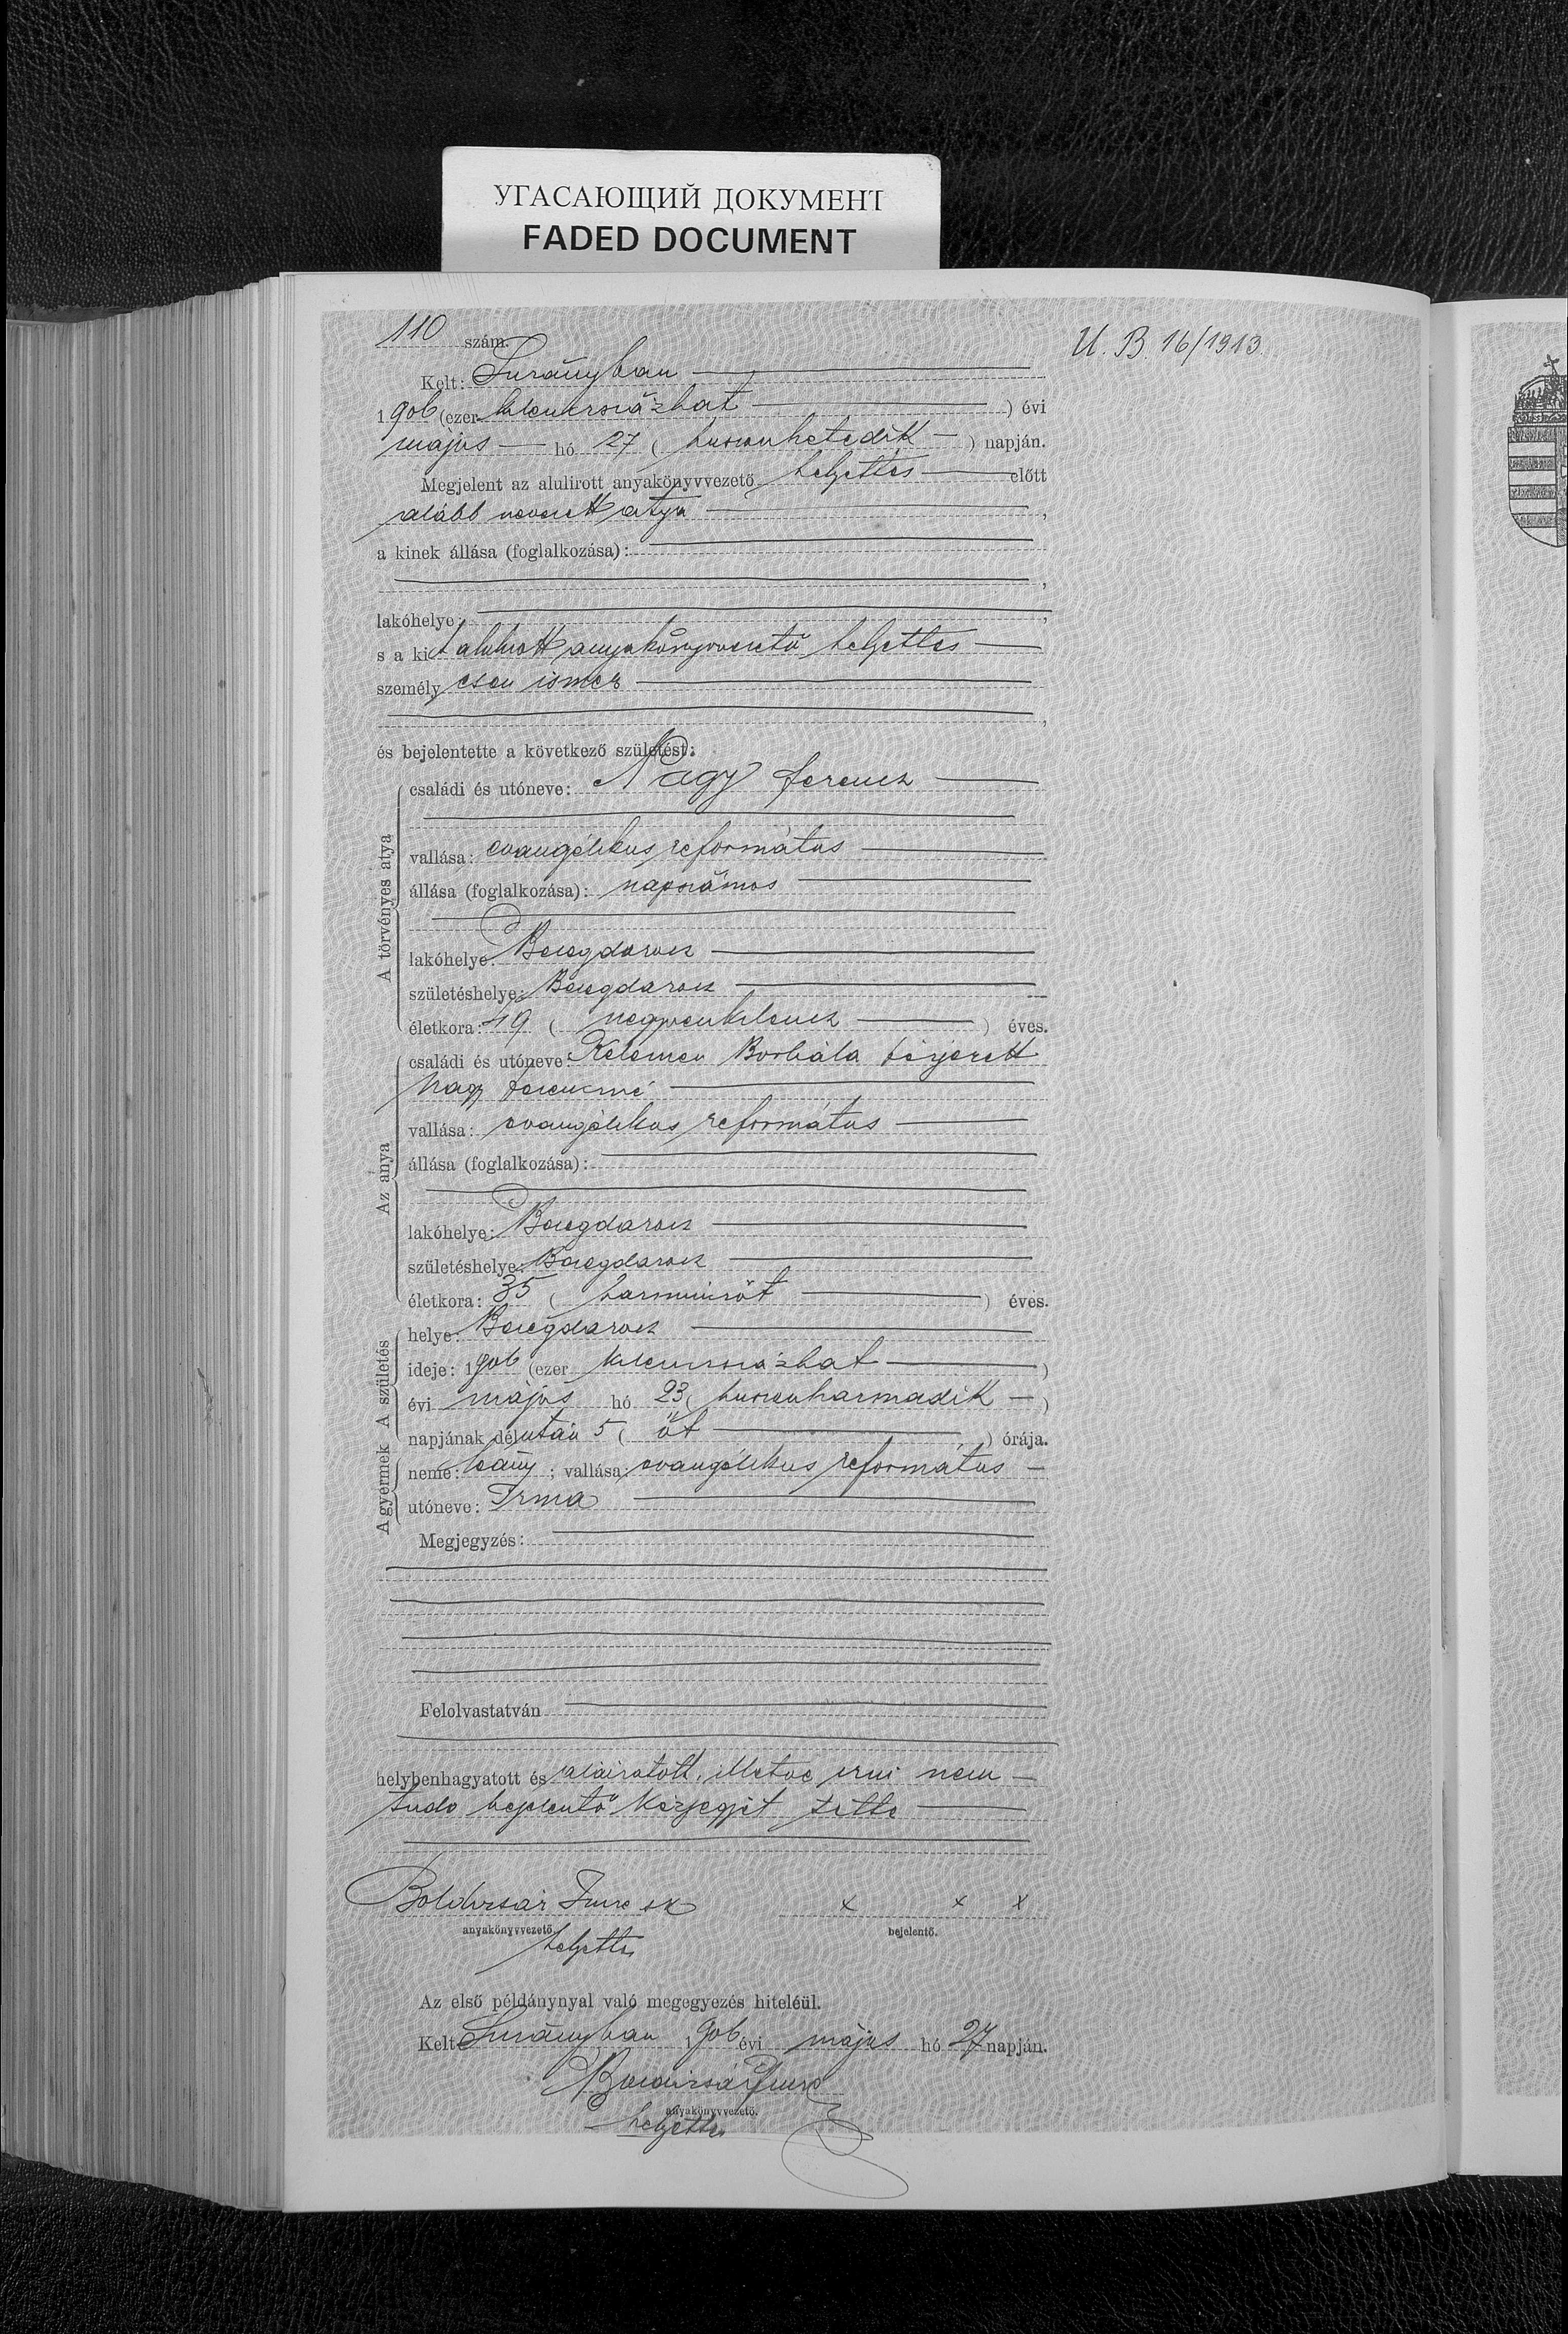 УГАСАЮЩИЙ ДОКУМЕНТ
FADED DOCUMENT
110 szám.
U. B. 16/1913
Kelt: Surányban
1906 (ezer kilenczszázhat) évi
május hó 27 (huszonhetedik) napján.
Megjelent az alulirott anyakönyvvezető helyettes előtt
alább nevezett atya,
a kinek állása (foglalkozása):
,
lakóhelye:,
s a kit alulirott anyakönyvvezető helyettes
személyesen ismer
,
és bejelentette a következő születést:
A törvényes atya
családi és utóneve: Nagy Ferencz
vallása: evangélikus református
állása (foglalkozása): napszámos
lakóhelye: Beregdarocz
születéshelye: Beregdarocz
életkora: 49 (negyvenkilencz) éves.
Az anya
családi és utóneve: Kelemen Borbála férjezett
Nagy Ferenczné
vallása: evangélikus református
állása (foglalkozása):
lakóhelye: Beregdarocz
születéshelye: Beregdarocz
életkora: 35 (harminczöt) éves.
A születés
helye: Beregdarocz
ideje: 1906 (ezer kilenczszázhat)
évi május hó 23 (huszonharmadik)
napjának délután 5 (öt) órája.
A gyermek
neme: leány; vallása: evangélikus református
utóneve: Irma
Megjegyzés:
Felolvastatván
helybenhagyatott és aláiratott, illetve irni nem
tudo bejelentő kézjegyét tette
Boldizsár Imre sk x x x
anyakönyvvezető. bejelentő.
helyettes
Az első példánynyal való megegyezés hiteléül.
Kelt Surányban 1906 évi május hó 27 napján.
Boldizsár Imre
anyakönyvvezető.
helyettes